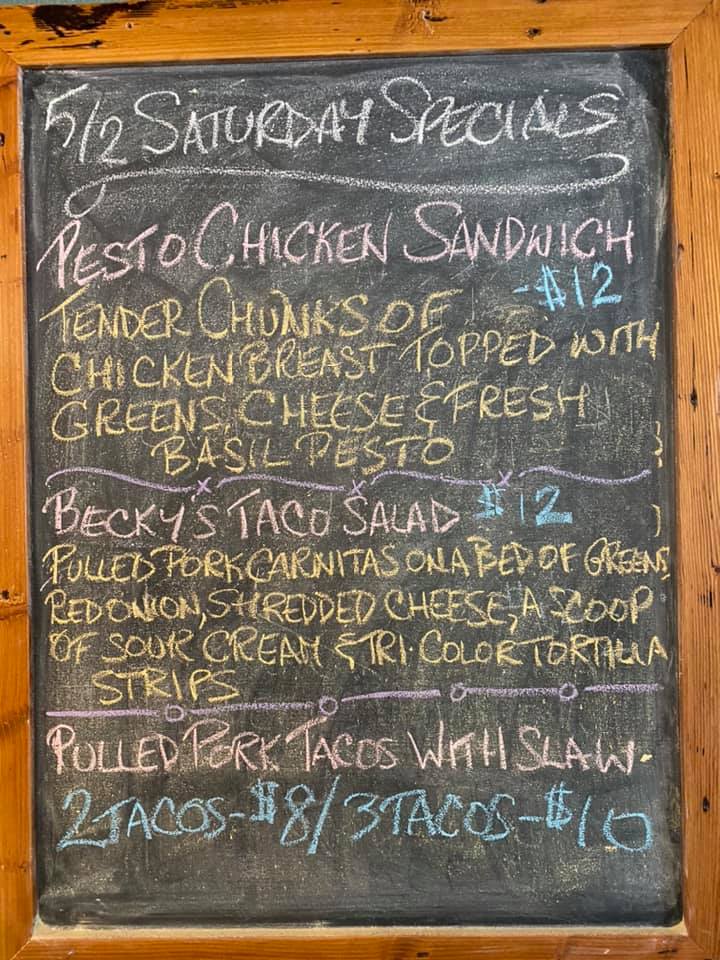 5/2 SATURDAY SPECIALS
PESTO CHICKEN SANDWICH
-$12
TENDER CHUNKS OF
CHICKEN BREAST TOPPED WITH
GREENS, CHEESE & FRESH
BASIL PESTO
BECKY'S TACO SALAD $12
PULLED PORK CARNITAS ON A BED OF GREENS,
RED ONION, SHREDDED CHEESE, A SCOOP
OF SOUR CREAM & TRI-COLOR TORTILLA
STRIPS
PULLED PORK TACOS WITH SLAW-
2 TACOS-$8/3 TACOS-$10